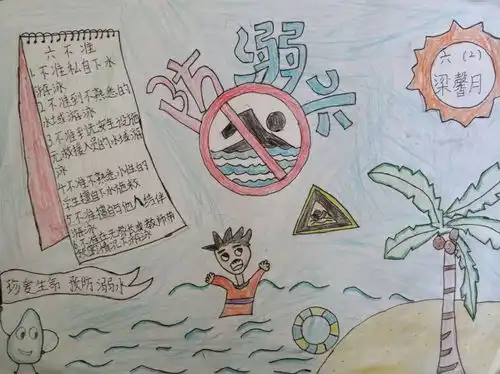 防溺水
六（2）
梁馨月
六不准
1.不准私自下水
游泳
2.不准到不熟悉的
水域游泳
3.不准到无安全设施
无救援人员的水域游
泳
4.不准不熟悉水性的
学生擅自下水施救
5.不准擅自与他人结伴
游泳
6.不准在无家长或教师带
领的情况下游泳
珍爱生命 预防溺水